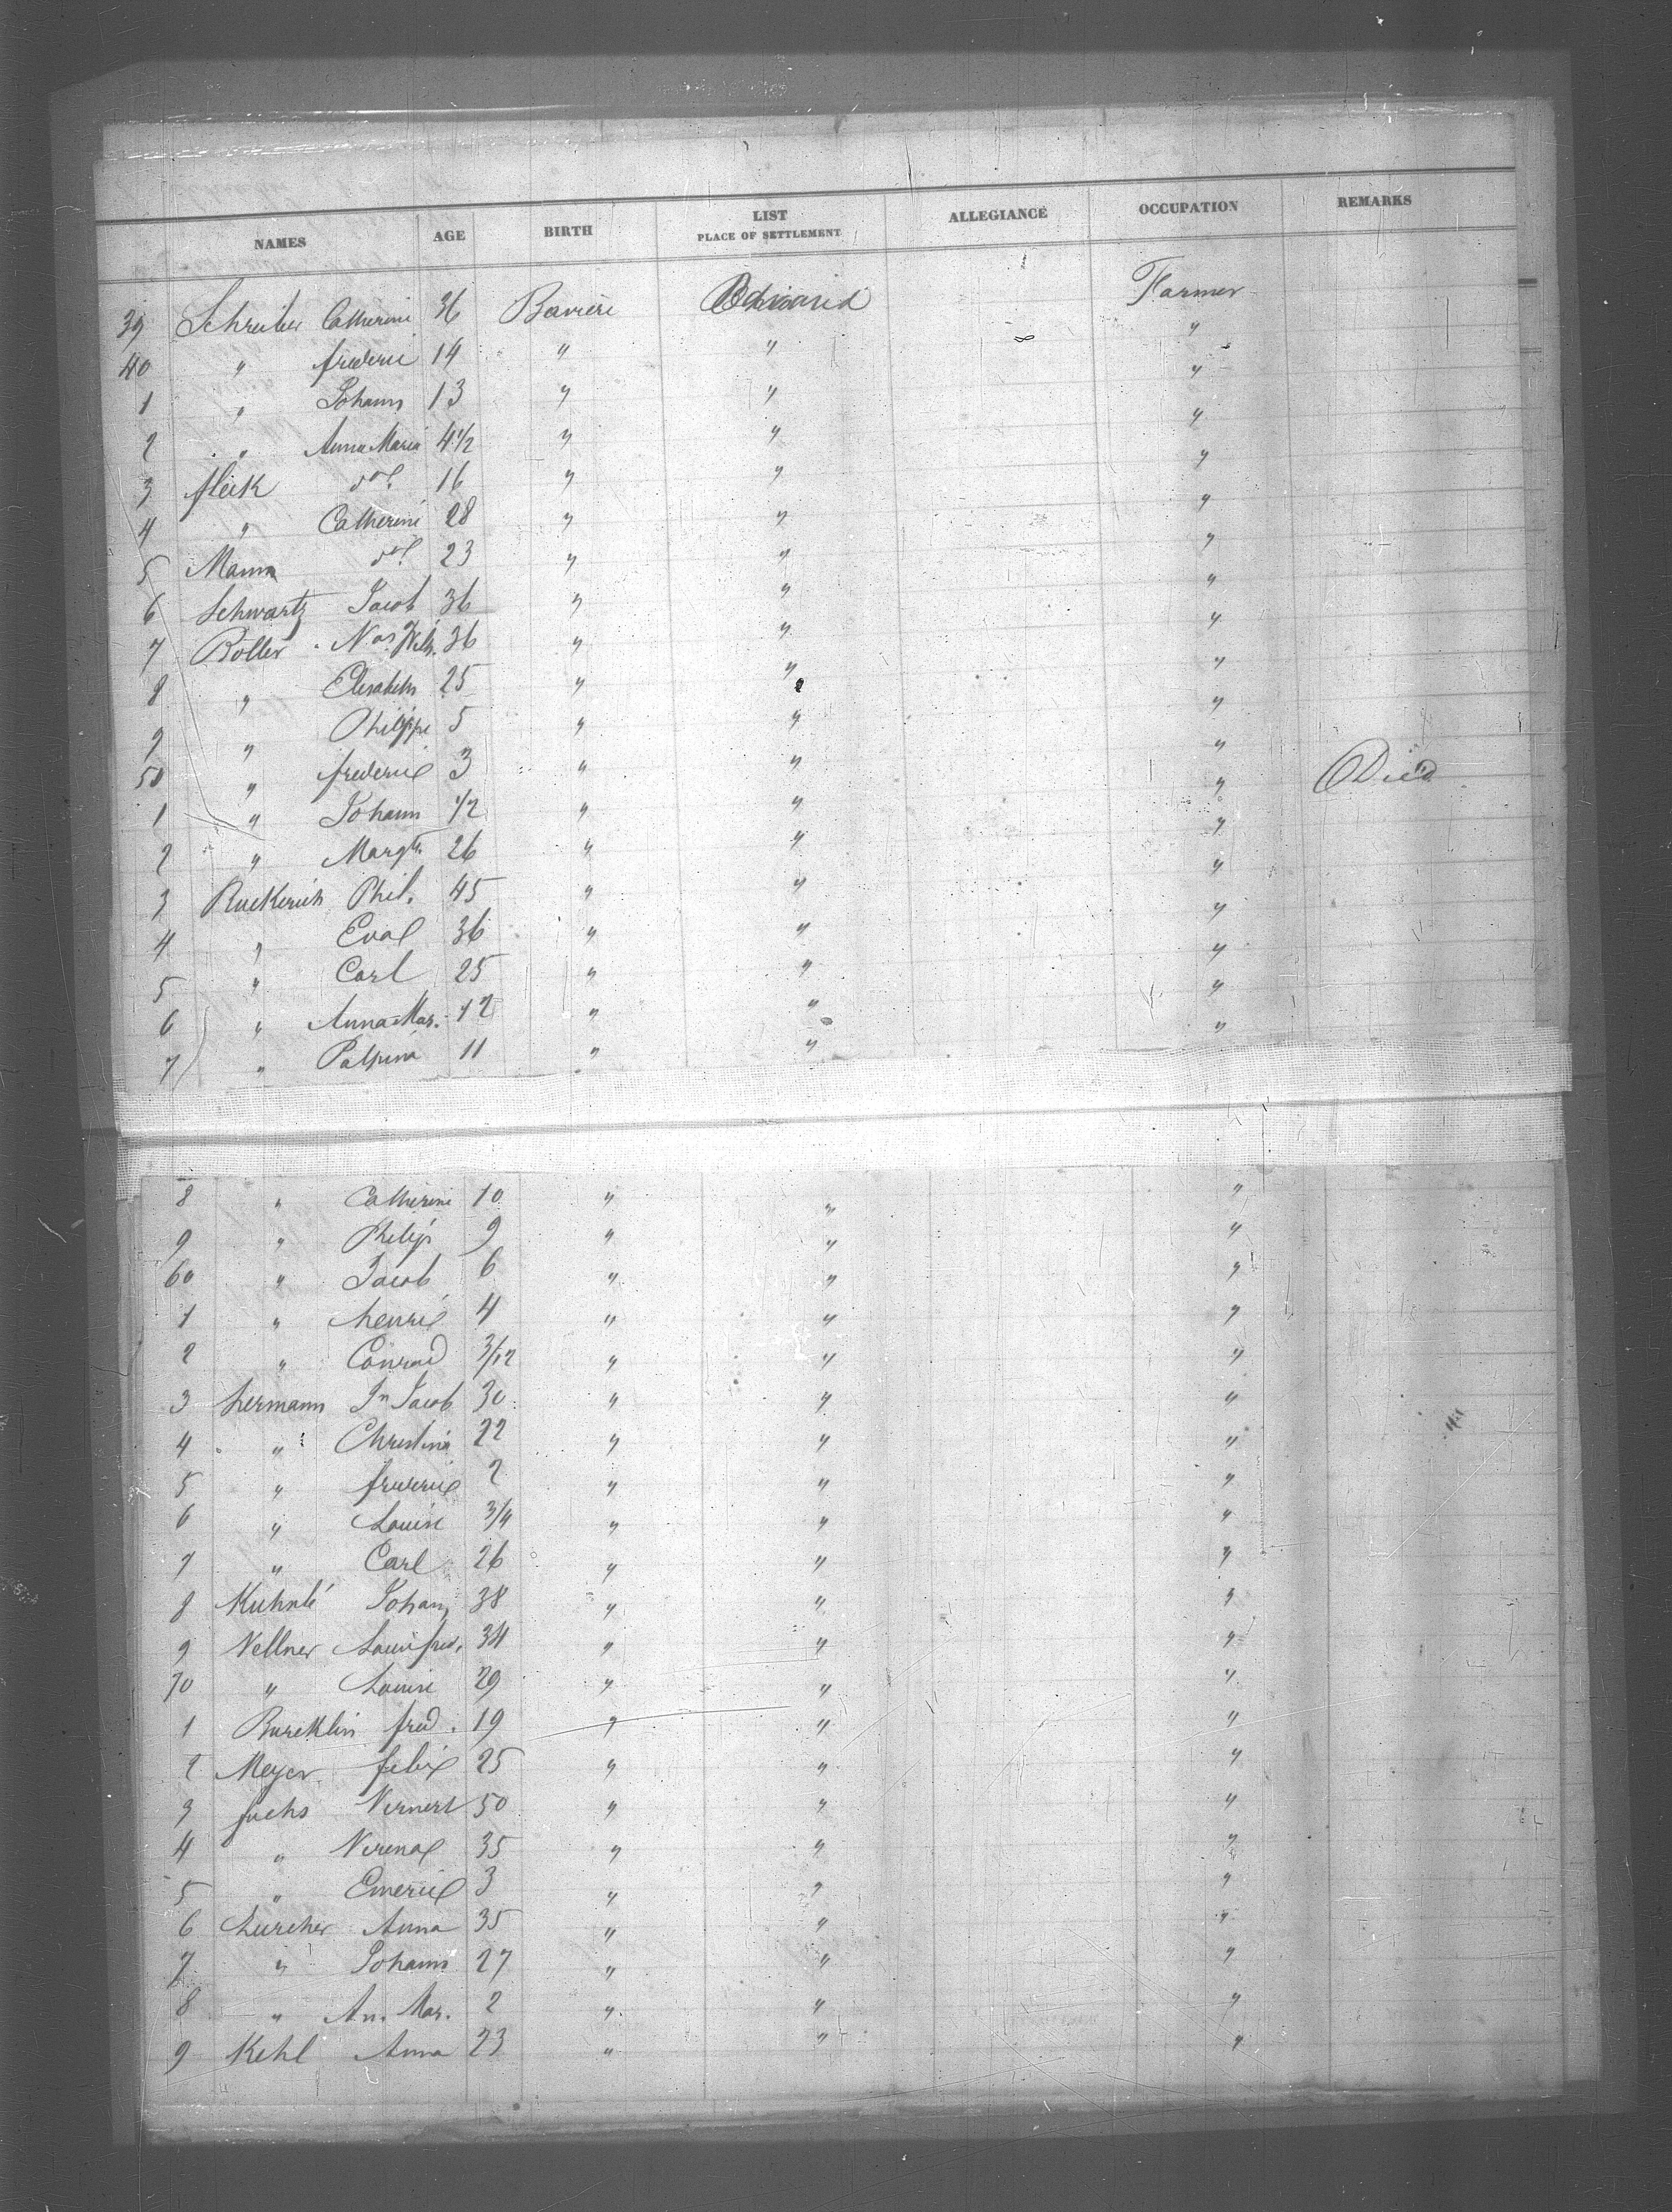 NAMES AGE BIRTH LIST PLACE OF SETTLEMENT ALLEGIANCE OCCUPATION REMARKS
39 Schreiber Catherine 36 Baviere Farmer
40 " frederic 14 " " "
1 " Johann 13 " " "
2 " Anna Maria 4 1/2 " " "
3 fleik do. 16 " " "
4 " Catherine 28 " " "
5 Mann do. 23 " " "
6 Schwartz Jacob 36 " " "
7 Boller 36 " " "
8 " Elisabeth 25 " " "
9 " Philippe 5 " " "
50 " frederic 3 " " " Died
1 " Johann 1/2 " " "
2 " Margth. 26 " " "
3 Ruckerich Phil. 45 " " "
4 " Eva 36 " " "
5 " Carl 25 " " "
6 " Anna Mar. 12 " " "
7 " 11 " " "
8 " Catherine 10 " " "
9 " Philip 9 " " "
60 " Jacob 6 " " "
1 " henrie 4 " " "
2 " Conrad 3/12 " " "
3 hermann Jn Jacob 30 " " "
4 " Christina 22 " " "
5 " frederic 2 " " "
6 " Louise 3/4 " " "
7 " Carl 26 " " "
8 Kuhnlé Johann 38 " " "
9 Nellner Louis fred. 34 " " "
70 " Louise 29 " " "
1 Burcklin fred. 19 " " "
2 Meyer felix 25 " " "
3 fuchs Vernert 50 " " "
4 " Verena 35 " " "
5 " Emerie 3 " " "
6 Lurcher Anna 35 " " "
7 " Johann 27 " " "
8 " An. Mar. 2 " " "
9 Kehl Anna 23 " " "